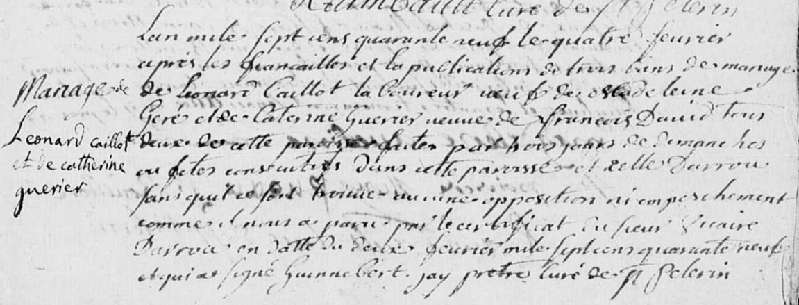 curé de St Pelerin
Lan mile sept cens quarante neuf le quatre fevrier
apres les fiancailles et la publications de trois bans de mariage
de Leonard Caillot laboureur veuf de magdeleine
Geré et de Caterine Guerier veuve de francois David tous
deux de cette paroisse faites par trois jours de dimanches
ou fetes consecutives dans cette paroisse et celle Darrou
sans quil ce soit trouvé aucune opposition ni empeschement
comme il nous a paru par le certificat du sieur vicaire
Darrou en datte du deux fevrier mile sept cens quarante neuf
et qui a signé Guinnebert. jay pretre curé de St Pelerin
Mariage de
Leonard caillot
et de catherine
guerier